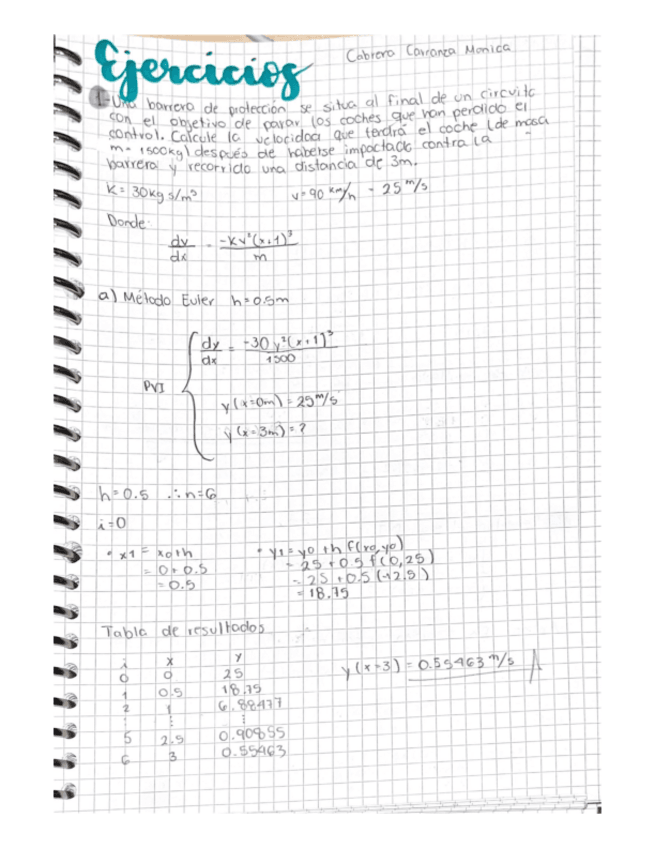 Ejercicios
Cabrera Carranza Monica
1-Una barrera de protección se situa al final de un circuito
con el objetivo de parar los coches que han perdido el
control. Calcule la velocidad que tendrá el coche (de masa
m= 1500kg) después de haberse impactado contra la
barrera y recorrido una distancia de 3m.
K= 30kg s/m³ v=90 km/h = 25 m/s
Donde:
dv/dx = -Kv²(x+1)³/m
a) Método Euler h=0.5m
PVI
dy/dx = -30 y²(x+1)³/1500
y(x=0m)=25m/s
y(x=3m)=?
h=0.5 ∴n=6
i=0
• x1 = x0+h • y1=y0+h f(x0,y0)
= 0+0.5 = 25+0.5 f(0,25)
= 0.5 = 25+0.5(-12.5)
= 18.75
Tabla de resultados
i x y
0 0 25
1 0.5 18.75
2 1 6.88477
⋮ ⋮ ⋮
5 2.5 0.90855
6 3 0.55463
y(x=3)=0.55463 m/s